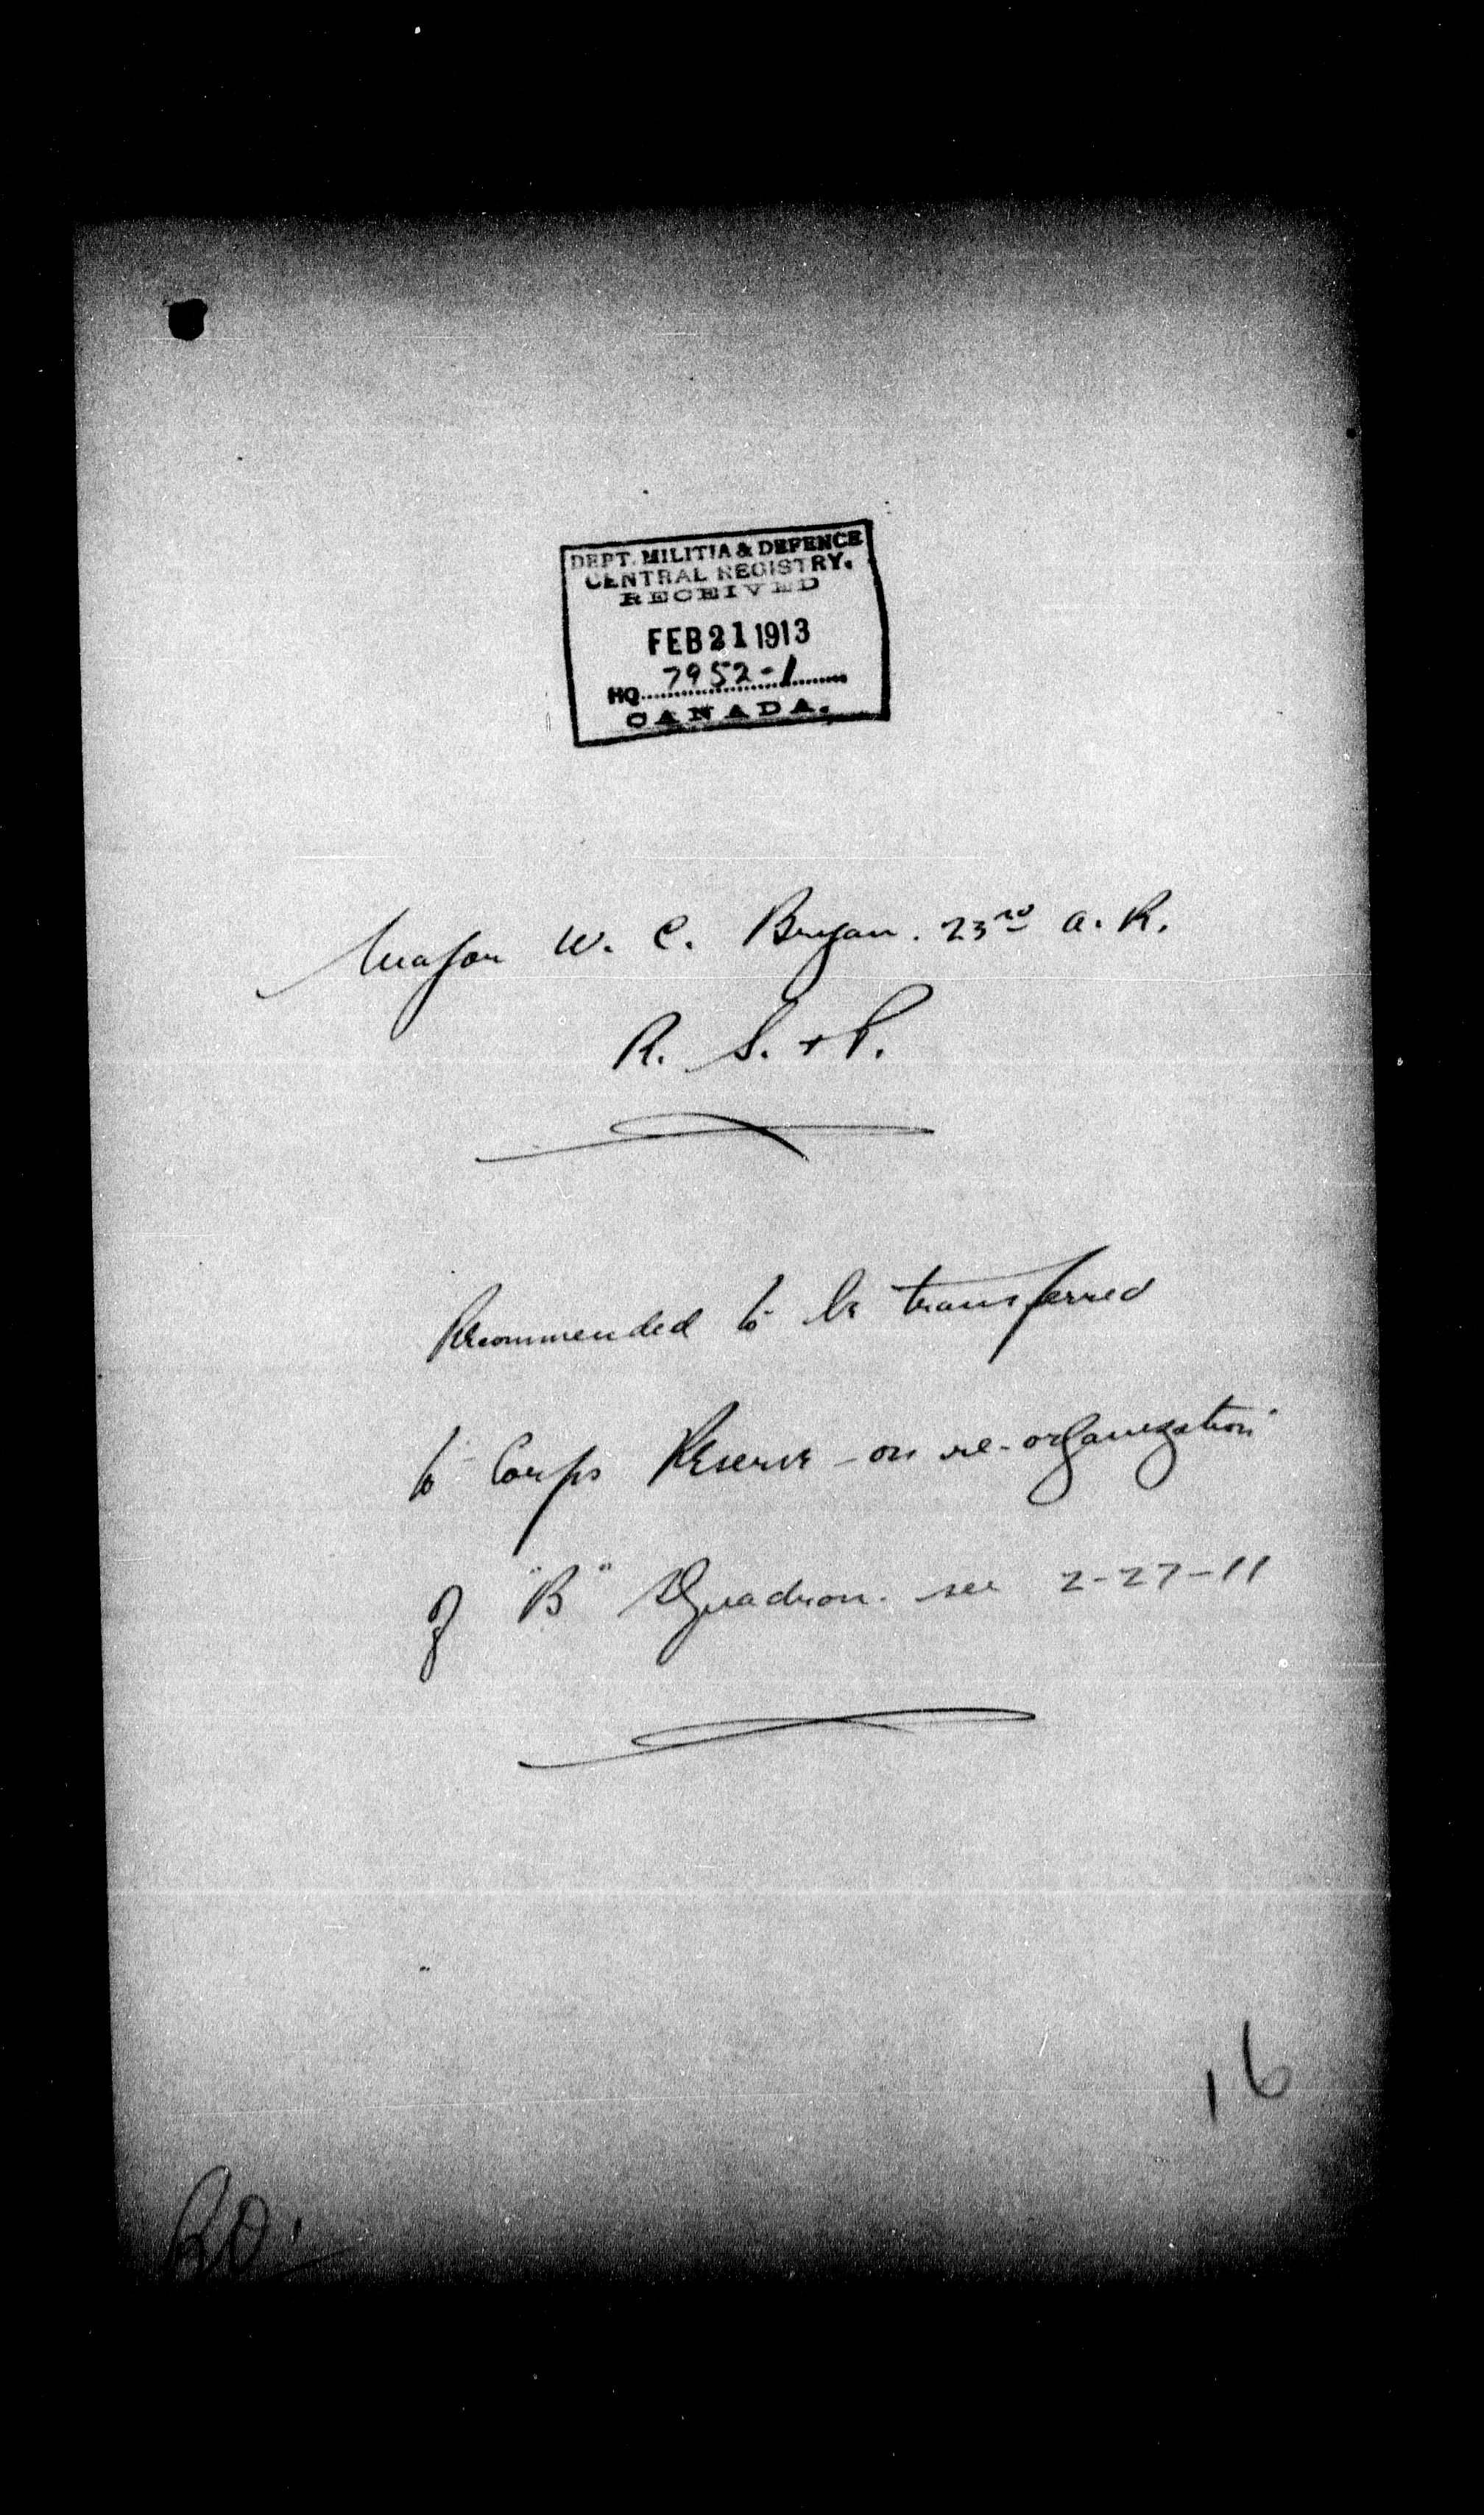 DEPT. MILITIA & DEFENCE
CENTRAL REGISTRY.
RECEIVED
FEB 21 1913
HQ. 7952-1
CANADA.
Major W. C. Bryan. 23rd A. R.
R. S. + P.
Recommended to be transferred
to Corps Reserve - on re-organization
of "B" Squadron. see 2-27-11
16